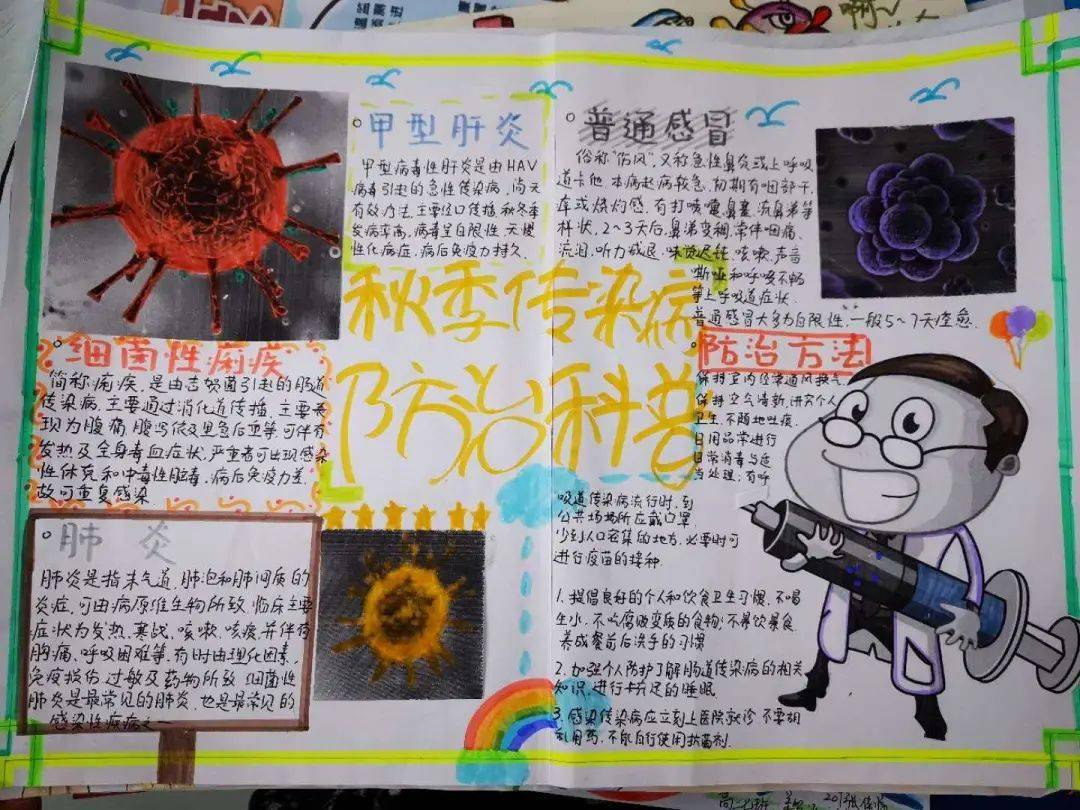 甲型肝炎
甲型病毒性肝炎是由HAV
病毒引起的急性传染病,尚无
有效疗法,主要经口传播,秋冬季
发病率高,病毒呈自限性,无慢
性化病症,病后免疫力持久.
普通感冒
俗称"伤风",又称急性鼻炎或上呼吸
道卡他,本病起病较急,初期有咽部干,
痒或烧灼感,有打喷嚏,鼻塞,流鼻涕等
症状,2~3天后,鼻涕变稠,常伴咽痛,
流泪,听力减退,味觉迟钝,咳嗽,声音
嘶哑和呼吸不畅
等上呼吸道症状.
普通感冒大多为自限性,一般5~7天痊愈.
秋季传染病
防治科普
细菌性痢疾
简称痢疾,是由志贺菌引起的肠道
传染病,主要通过消化道传播,主要表
现为腹痛腹泻及里急后重等,可伴有
发热及全身毒血症状,严重者可出现感染
性休克和中毒性脑毒,病后免疫力差,
故可重复感染
肺炎
肺炎是指末气道,肺泡和肺间质的
炎症,可由病原维生物所致,临床主要
症状为发热,寒战,咳嗽,咳痰,并伴有
胸痛、呼吸困难等,有时由理化因素,
免疫损伤,过敏及药物所致,细菌性
肺炎是最常见的肺炎,也是最常见的
感染性疾病之一
防治方法
保持室内经常通风换气,
保持空气清新,讲究个人
卫生,不随地吐痰,
日用品常进行
日常消毒与适
当处理;有呼
吸道传染病流行时,到
公共场所应戴口罩
少到人口密集的地方,必要时可
进行疫苗的接种.
1.提倡良好的个人和饮食卫生习惯,不喝
生水,不吃腐败变质的食物;不暴饮暴食,
养成餐前后洗手的习惯
2.加强个人防护了解肠道传染病的相关
知识,进行充足的睡眠
3.感染传染病应立刻上医院就诊不要胡
乱用药,不能自行使用抗菌剂.